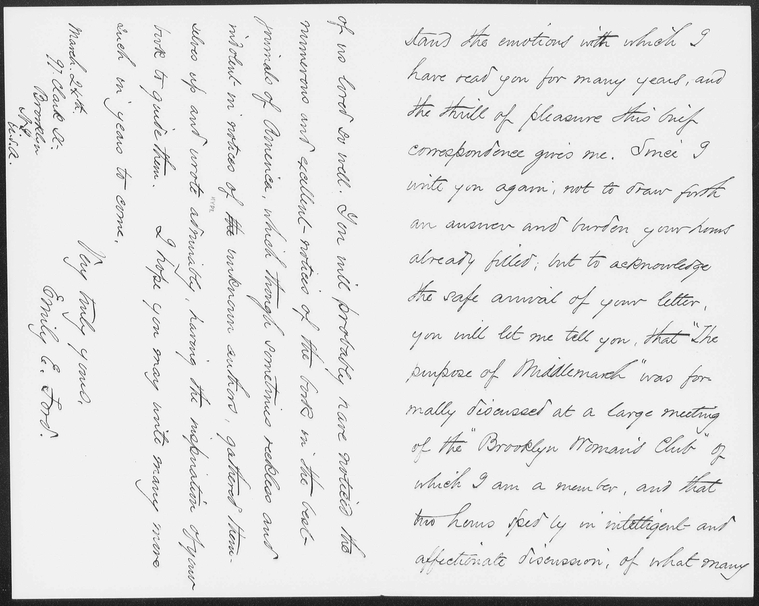 stand the emotions with which I
have read you for many years, and
the thrill of pleasure this brief
correspondence gives me. Since I
write you again, not to draw forth
an answer and burden your hours
already filled; but to acknowledge
the safe arrival of your letter,
you will let me tell you, that "The
purpose of Middlemarch" was for
mally discussed at a large meeting
of the "Brooklyn Woman's Club" of
which I am a member, and that
two hours sped by in intelligent and
affectionate discussion, of what many
of us loved so well. You will probably have noticed the
numerous and excellent notices of the book in the best
journals of America, which though sometimes reckless and
indolent in notices of the unknown authors, gathered them-
selves up and wrote admirably, having the inspiration of your
book to guide them. I hope you may write many more
such in years to come.
Very truly yours,
Emily E. Ford.
March 24th
97 Clark St.
Brooklyn
N.Y.
U.S.A.